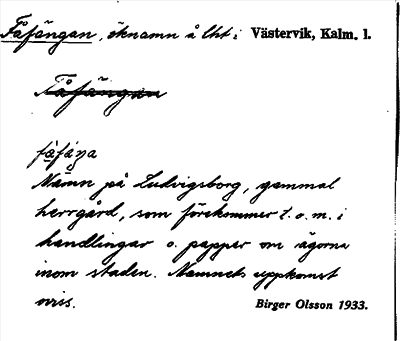 Fåfängan, öknamn å lht i Västervik, Kalm. l.
Fåfängan
fåfäŋa
Namn på Ludvigsborg, gammal
herrgård, som förekommer t. o. m. i
handlingar o. papper om ägorna
inom staden. Namnets uppkomst
oviss.
Birger Olsson 1933.